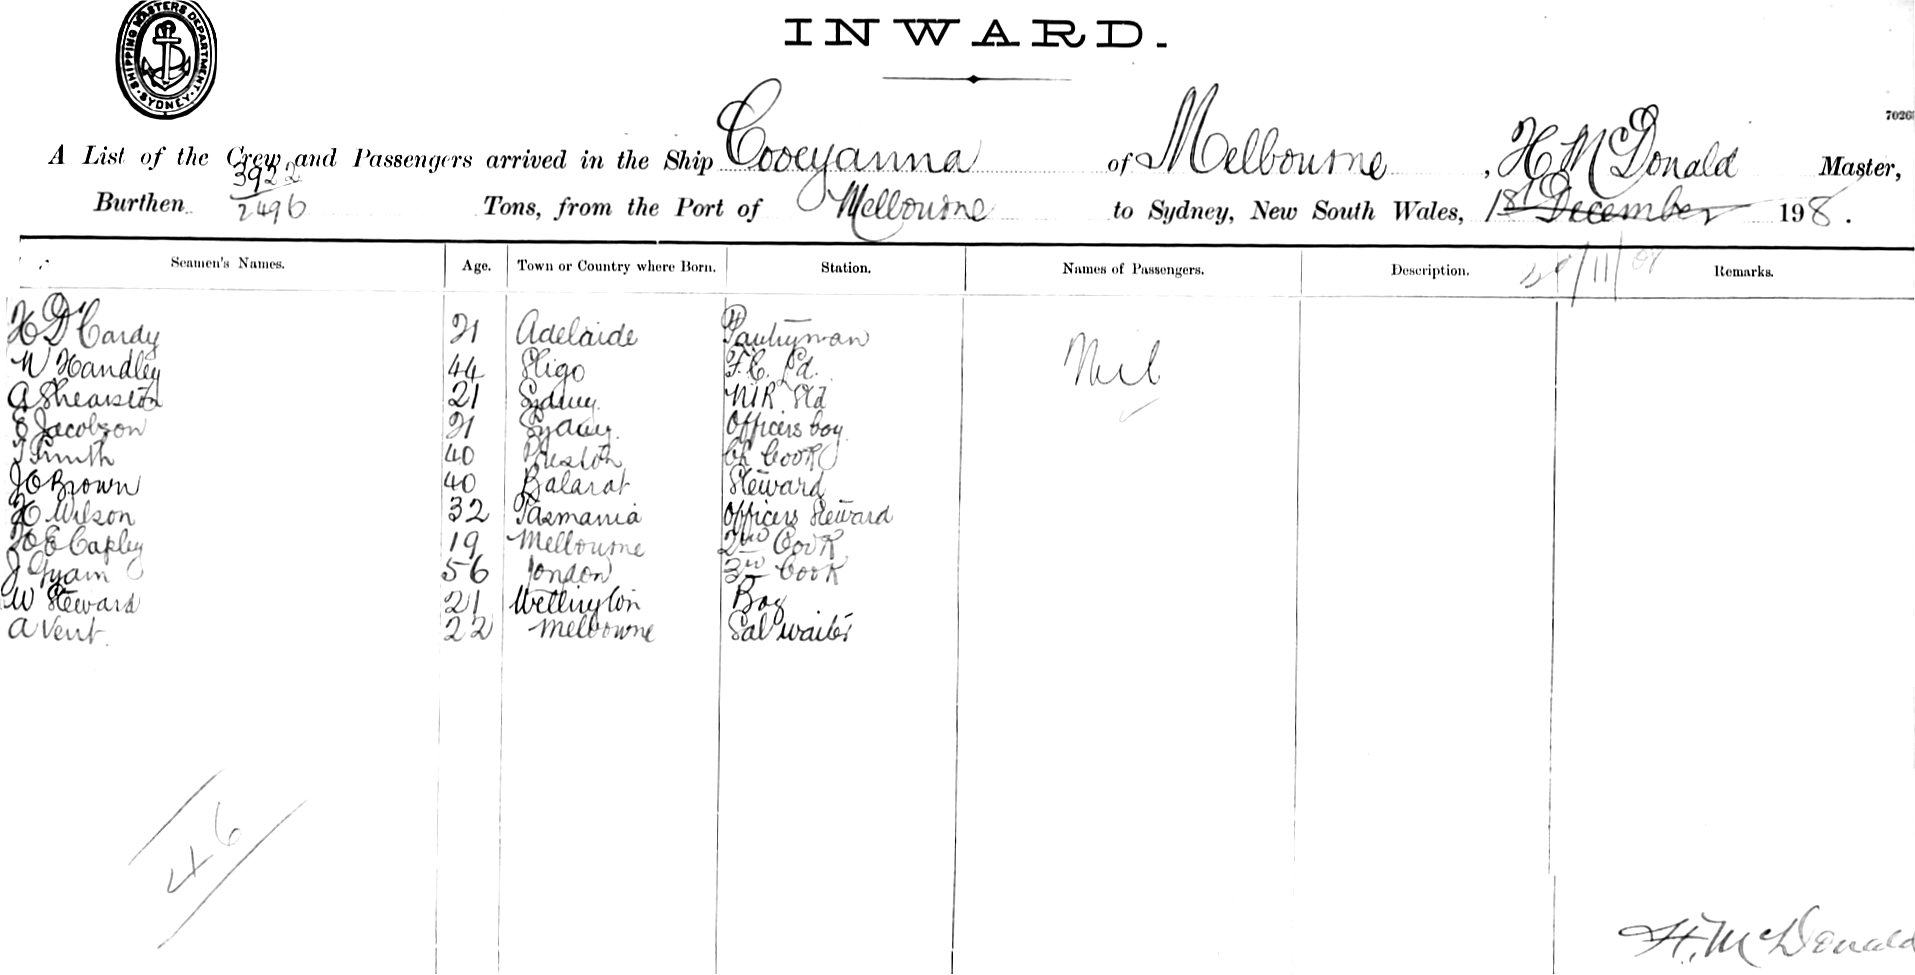 SHIPPING MASTERS DEPARTMENT. SYDNEY.
INWARD.
7026
A List of the Crew and Passengers arrived in the Ship Cooeyanna of Melbourne, H McDonald Master,
Burthen 3922 2496 Tons, from the Port of Melbourne to Sydney, New South Wales, 1st December 198.
Seamen's Names. Age. Town or Country where Born. Station. Names of Passengers. Description. Remarks.
H D Cardy 21 Adelaide Pantryman Nil
W Handley 44 Sligo F.C. Sd.
A Shearston 21 Sydney Std
E Jacobson 21 Sydney Officers boy
T Smith 40 Preston Ch Cook
J C Brown 40 Balarat Steward
H Wilson 32 Tasmania Officers Steward
E Capley 19 Melbourne 2nd Cook
J Gyam 56 London 3rd Cook
W Steward 21 Wellington Boy
A Vent. 22 Melbourne Sal waiter
46
H. McDonald